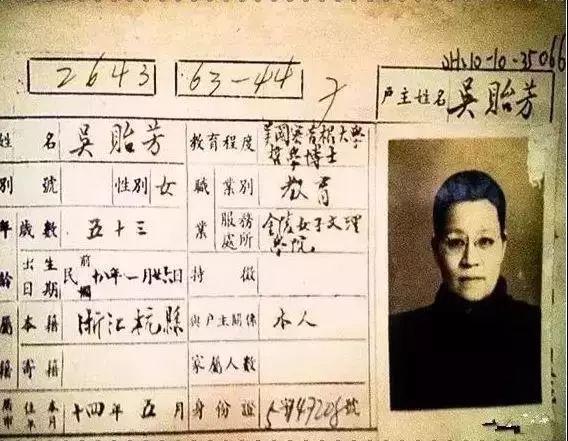 2643
63-44
JH10-10-35066
戶主姓名 吳貽芳
姓名 吳貽芳 教育程度 美國密書根大學
哲學博士
別號 性別 女 職業 業別 教育
年齡 歲數 五十三 服務處所 金陵女子文理
學院
出生日期 民前 年一月廿六日 特徵
屬籍 本籍 浙江杭縣 與戶主關係 本人
寄籍 家屬人數
本市 住年 本月 十四年五月 身份證 字 47208 號